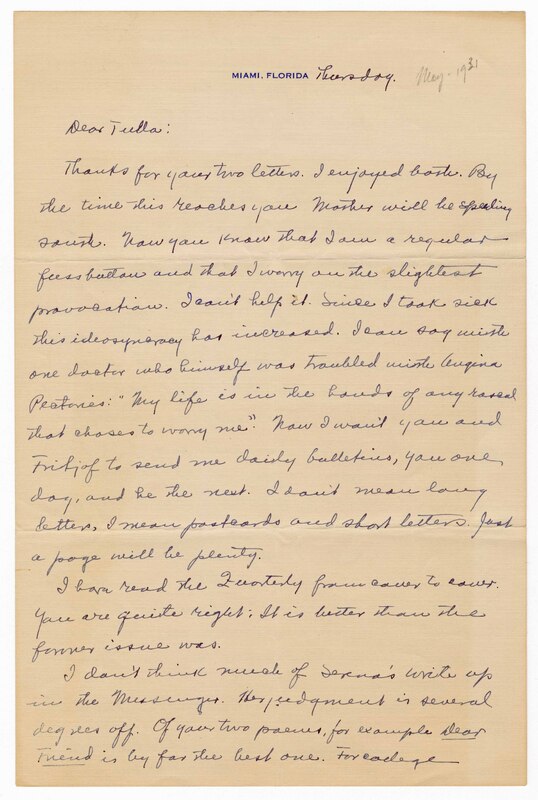 MIAMI, FLORIDA Thursday. May - 1931
Dear Tulla:
Thanks for your two letters. I enjoyed both. By
the time this reaches you Mother will be speeding
south. Now you know that I am a regular
fussbutton and that I worry on the slightest
provocation. I can't help it. Since I took sick
this ideosyncracy has increased. I can say with
one doctor who himself was troubled with Angina
Pectories: "My life is in the hands of any rascal
that choses to worry me". Now I want you and
Fritjof to send me daily bulletins, you one
day, and he the next. I don't mean long
letters, I mean postcards and short letters. Just
a page will be plenty.
I have read the Quarterly from cover to cover.
You are quite right: It is better than the
former issue was.
I don't think much of write up
in the Messenger. Her judgment is several
degrees off. Of your two poems, for example Dear
Friend is by far the best one. For